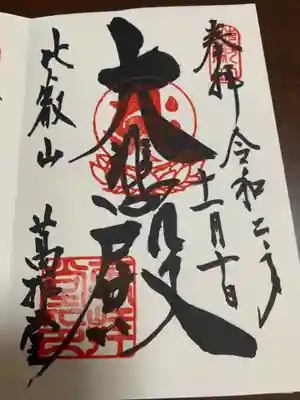 奉拝
令和二年
十一月十日
大悲殿
比叡山
萬拝堂